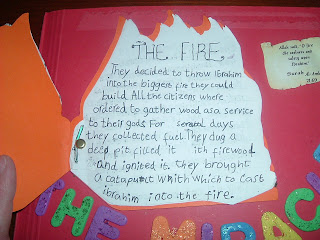 THE FIRE.
They decided to throw Ibrahim
into the biggest fire they could
build. All the citizens where
ordered to gather wood as a service
to their gods. For several days
they collected fuel. They dug a
deep pit, filled it ith firewood
and ignited it. they brought
a catapult whith which to cast
ibrahim into the fire.
Surah
THE MIRACL